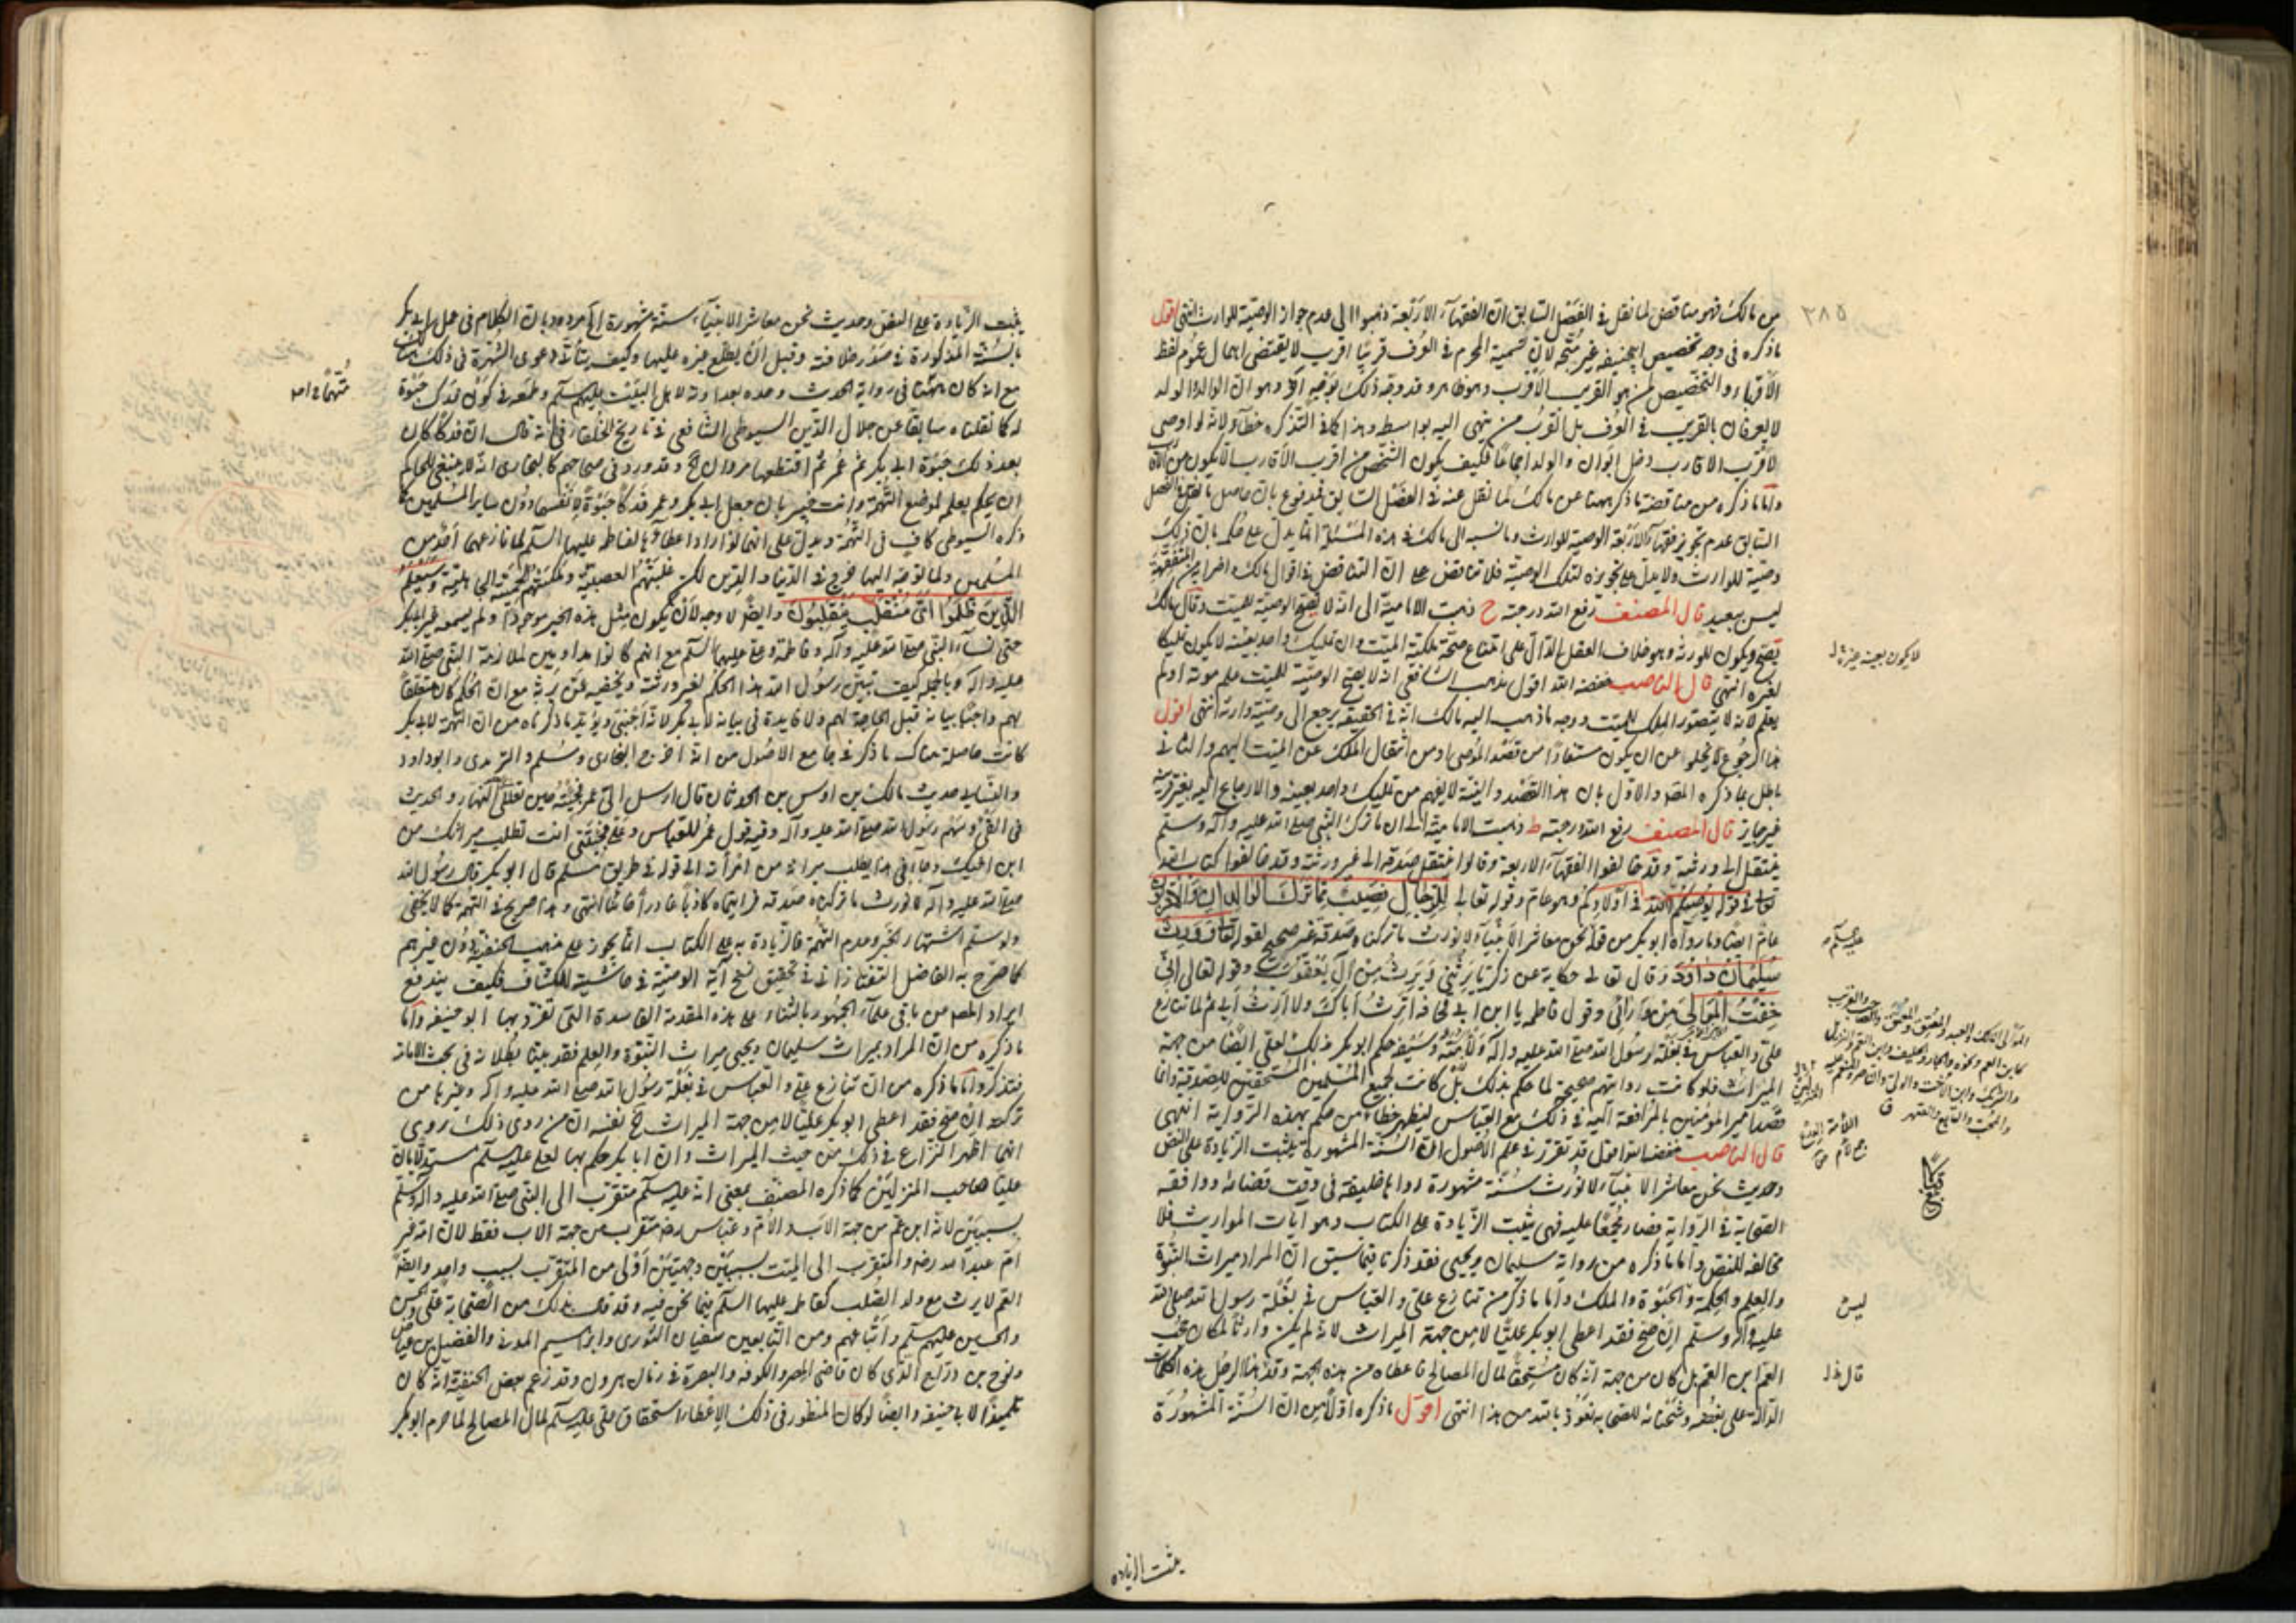 ٣٨٥
من مالك فهو مناقض لما نقل فى الفصل السابق ان الفقهاء الاربعة ذهبوا الى عدم جواز الوصية للوارث انتهى اقول
ما ذكره فى وجه تخصيص ابيحنيفه غير متجه لان تسمية المحرم فى العرف قريبا اقرب لا يقتضى اهمال عموم لفظ
الاقرباء والتخصيص لمن هو القريب الاقرب وهو ظاهر وقد وجه ذلك بوجه آخر وهو ان الوالد والولد
لا يعرفان بالقريب فى العرف بل القريب من ينتهى اليه بواسطه وهذا كما فى التذكره خطأ ولانه لو اوصى
لاقرب الاقارب دخل الابوان والولد اجماعا فكيف يكون الشخص من اقرب الاقارب الا يكون من الاقارب
واما ما ذكره من مناقضة ما ذكر ههنا عن مالك لما نقل عنه فى الفصل السابق فمدفوع بان حاصل ما نقل فى الفصل
السابق عدم تجويز فقهاء الاربعة الوصية للوارث وما نسبه الى مالك فى هذه المسئلة انما يدل على حكمه بان ذلك
وصية للوارث ولا يدل على تجويزه لتلك الوصية فلا تناقض على ان التناقض فى اقوال مالك واضرابه من المتفقهة
ليس ببعيد قال المصنف رفع الله درجته ح ذهبت الامامية الى انه لا تصح الوصية للميت وقال مالك
تصح ويكون للورثه وهو خلاف العقل الدال على امتناع صحة ملكية الميت وان تمليك واحد بعينه لا يكون تمليكا
لغيره انتهى قال الناصب خفضه الله اقول مذهب الشافعى انه لا يصح الوصية للميت علم موته او لم
يعلم لانه لا يتصور الملك للميت ووجه ما ذهب اليه مالك انه فى الحقيقه يرجع الى وصية وارثه انتهى اقول
هذا الرجوع لا يخلو عن ان يكون مستفادا من قصد الموصى او من انتقال الملك عن الميت اليهم والثانى
باطل بما ذكره المص والاول بان هذا القصد والنية لا يفهم من تمليك واحد بعينه والارجاع اليه بغير قرينه
غير جايز قال المصنف رفع الله درجته ط ذهبت الامامية الى ان ما ترك النبى صلى الله عليه وآله وسلم
ينتقل الى ورثته وقد خالفوا الفقهاء الاربعة وقالوا ينتقل صدقه الى غير ورثته وقد خالفوا كتاب الله
تعالى فى قوله يوصيكم الله فى اولادكم وهو عام وقوله تعالى للرجال نصيب مما ترك الوالدان والاقربون
عام ايضا وما رواه ابو بكر من قوله نحن معاشر الانبياء لا نورث ما تركناه صدقة غير صحيح لقوله تعالى وورث
سليمان داود وقال تعالى حكاية عن زكريا يرثنى ويرث من آل يعقوب وقوله تعالى انى
خفت الموالى من ورائى وقول فاطمه يا ابن ابى قحافه اترث اباك ولا ارث ابى ثم لما تنازع
على والعباس فى بغلة رسول الله صلى الله عليه وآله ولأمته وسيفه حكم ابو بكر بذلك لعلى ايضا من جهة
الميراث فلو كانت روايتهم صحيحة لما حكم بذلك بل كانت لجميع المسلمين المستحقين للصدقة وانما
قصد امير المؤمنين بالمرافعة اليه فى ذلك مع العباس ليظهر خطأ من حكم بهذه الرواية انتهى
قال الناصب خفضه الله اقول قد تقرر فى علم الاصول ان السنة المشهورة يثبت الزيادة على النص
وحديث نحن معاشر الانبياء لا نورث سنة مشهورة رواها خليفه فى وقت قضائه ووافقه
الصحابة فى الرواية فصار مجمعا عليه فهى يثبت الزيادة على الكتاب وهو آيات المواريث فلا
مخالفه للنص واما ما ذكره من رواية سليمان ويحيى فقد ذكرنا فيما سبق ان المراد ميراث النبوة
والعلم والحكمة والحبوة والملك واما ما ذكر من تنازع على والعباس فى بغلة رسول الله صلى الله
عليه وآله وسلم ان صح فقد اعطى ابو بكر عليا لا من جهة الميراث لانه لم يكن وارثا لمكان عمه
العم ابن العم بل كان من جهة انه كان مستحقا لمال المصالح فاعطاه من هذه الجهة وقد هذا الرجل هذه الكلمات
الدالة على بغضه وشحنائه للصحابه نعوذ بالله من هذا انتهى اقول ما ذكره اولا من ان السنة المشهورة
لا يكون بعينه
عليه السلم
ليس
قال
يثبت الزياده
يثبت الزيادة على النص وحديث نحن معاشر الانبياء سنة مشهورة الخ مردود بان الكلام فى عمل ابى بكر
بالسنة المذكورة فى صدر خلافته وقبل ان يطلع غيره عليها وكيف يتأتى دعوى الشهرة فى ذلك
مع انه كان متهما فى رواية الحديث وحده بعداوته لاهل البيت عليهم السلم وطمعه فى كون فدك حبوة
له كما نقلناه سابقا عن جلال الدين السيوطى الشافعى فى تاريخ الخلفاء فى انه قال ان فدكا كان
بعد ذلك حبوة ابى بكر ثم عمر ثم اقتطعها مروان الخ وقد ورد فى صحاحهم كالبخارى انه لا ينبغى للحاكم
ان يحكم بعلمه لموضع التهمة وانت خبير بان جعل ابى بكر وعمر فدكا حبوة لانفسهما دون ساير المسلمين كما
ذكره السيوطى كاف فى التهمة ويدل على انهما لو ارادا اعطاءها لفاطمه عليها السلم لما نازعهما احد من
المسلمين ولما توجه اليهما حرج فى الدنيا والدين لكن غلبتهم العصبية وملكتهم الحمية الجاهلية وسيعلم
الذين ظلموا اى منقلب ينقلبون وايضا لا وجه لان يكون مثل هذه الخبر موجودا ولم يسمعه غير ابى بكر
حتى نساء النبى صلى الله عليه وآله وفاطمة وعلى عليهما السلم مع انهم كانوا مداومين لملازمة النبى صلى الله
عليه وآله وبالجملة كيف يبين رسول الله هذا الحكم لغير ورثته ويخفيه عمن يرثه مع ان الحكم كان متعلقا
بهم واجبا بيانه قبل الحاجة لهم ولا فايدة فى بيانه لابى بكر لانه اجنبى ويؤيد ما ذكرناه من ان التهمة لابى بكر
كانت حاصلة هناك ما ذكر فى جامع الاصول من انه اخرج البخارى ومسلم والترمذى وابو داود
والنسائى حديث مالك بن اوس بن الحدثان قال ارسل الى عمر فجئته حين تعالى النهار والحديث
فى الفئ وسهم رسول الله صلى الله عليه وآله وفيه قول عمر للعباس وعلى فجئتنى انت تطلب ميراثك من
ابن اخيك وجاءنى هذا يطلب ميراثه من امرأته الى قوله فى طريق مسلم قال ابو بكر قال رسول الله
صلى الله عليه وآله لا نورث ما تركناه صدقه فرايتماه كاذبا غادرا خائنا انتهى وهذا صريح فى التهمة كما لا يخفى
ولو سلم اشتهار الخبر وعدم التهمة فالزيادة به على الكتاب انما يجوز على مذهب الحنفية دون غيرهم
كما صرح به الفاضل التفتازانى فى تحقيق نسخ آية الوصية فى حاشيته للكشاف فكيف يندفع
ايراد المص من باقى علماء الجمهور بالبناء على هذه المقدمة الفاسدة التى تفرد بها ابو حنيفه واما
ما ذكره من ان المراد بميراث سليمان ويحيى ميراث النبوة والعلم فقد بينا بطلانه فى بحث الامامة
فتذكر واما ما ذكره من ان تنازع على والعباس فى بغلة رسول الله صلى الله عليه وآله وغيرها من
تركته ان صح فقد اعطى ابو بكر عليا لا من جهة الميراث الخ نفسه ان من روى ذلك روى
انهما اظهرا النزاع فى ذلك من حيث الميراث وان ابا بكر حكم بها لعلى عليه السلم مستدلا بان
عليا صاحب المنزلتين كما ذكره المصنف بمعنى انه عليه السلم متقرب الى النبى صلى الله عليه وآله وسلم
بسببين لانه ابن عم من جهة الاب والام وعباس رضه متقرب من جهة الاب فقط لان امه غير
ام عبد الله رضه والمتقرب الى الميت بسببين وجهتين اولى من المتقرب بسبب واحد وايضا
العم لا يرث مع ولد الصلب كفاطمه عليها السلم فيما نحن فيه وقد قال بذلك من الصحابة على والحسن
والحسين عليهم السلم واتباعهم ومن التابعين سفيان الثورى وابراهيم المدنى والفضيل بن عياض
ونوح بن دراج الذى كان قاضى المصر والكوفه والبصرة فى زمان هرون وقد زعم بعض الحنفية انه كان
تلميذا لابى حنيفه وايضا لو كان المنظور فى ذلك الاعطاء استحقاق على عليه السلم لمال المصالح لما حرم ابو بكر
متهما